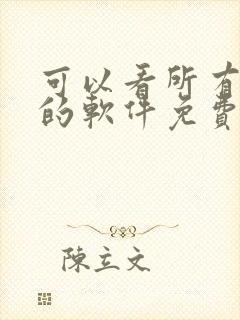 可以看所有
的軟件免費
陳立文